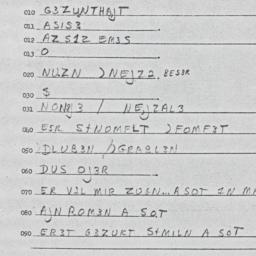 010 G3ZUNTHAJT
011 ASIS3
012 AZ S1Z EM3S
013 O
020 NUZN )NEJZ2. BES3R
030 S
031 NON3J3 / NEJZAL3
040 ESR S+NOMELT )FOMF3T
050 DLUB3N )GRABL3N
060 DUS OJ3R
070 ER V3L MIR ZOGN...A SOT IN
080 AJN ROM3N A SOT
090 ER3T G3ZUKT S+MILN A SOT